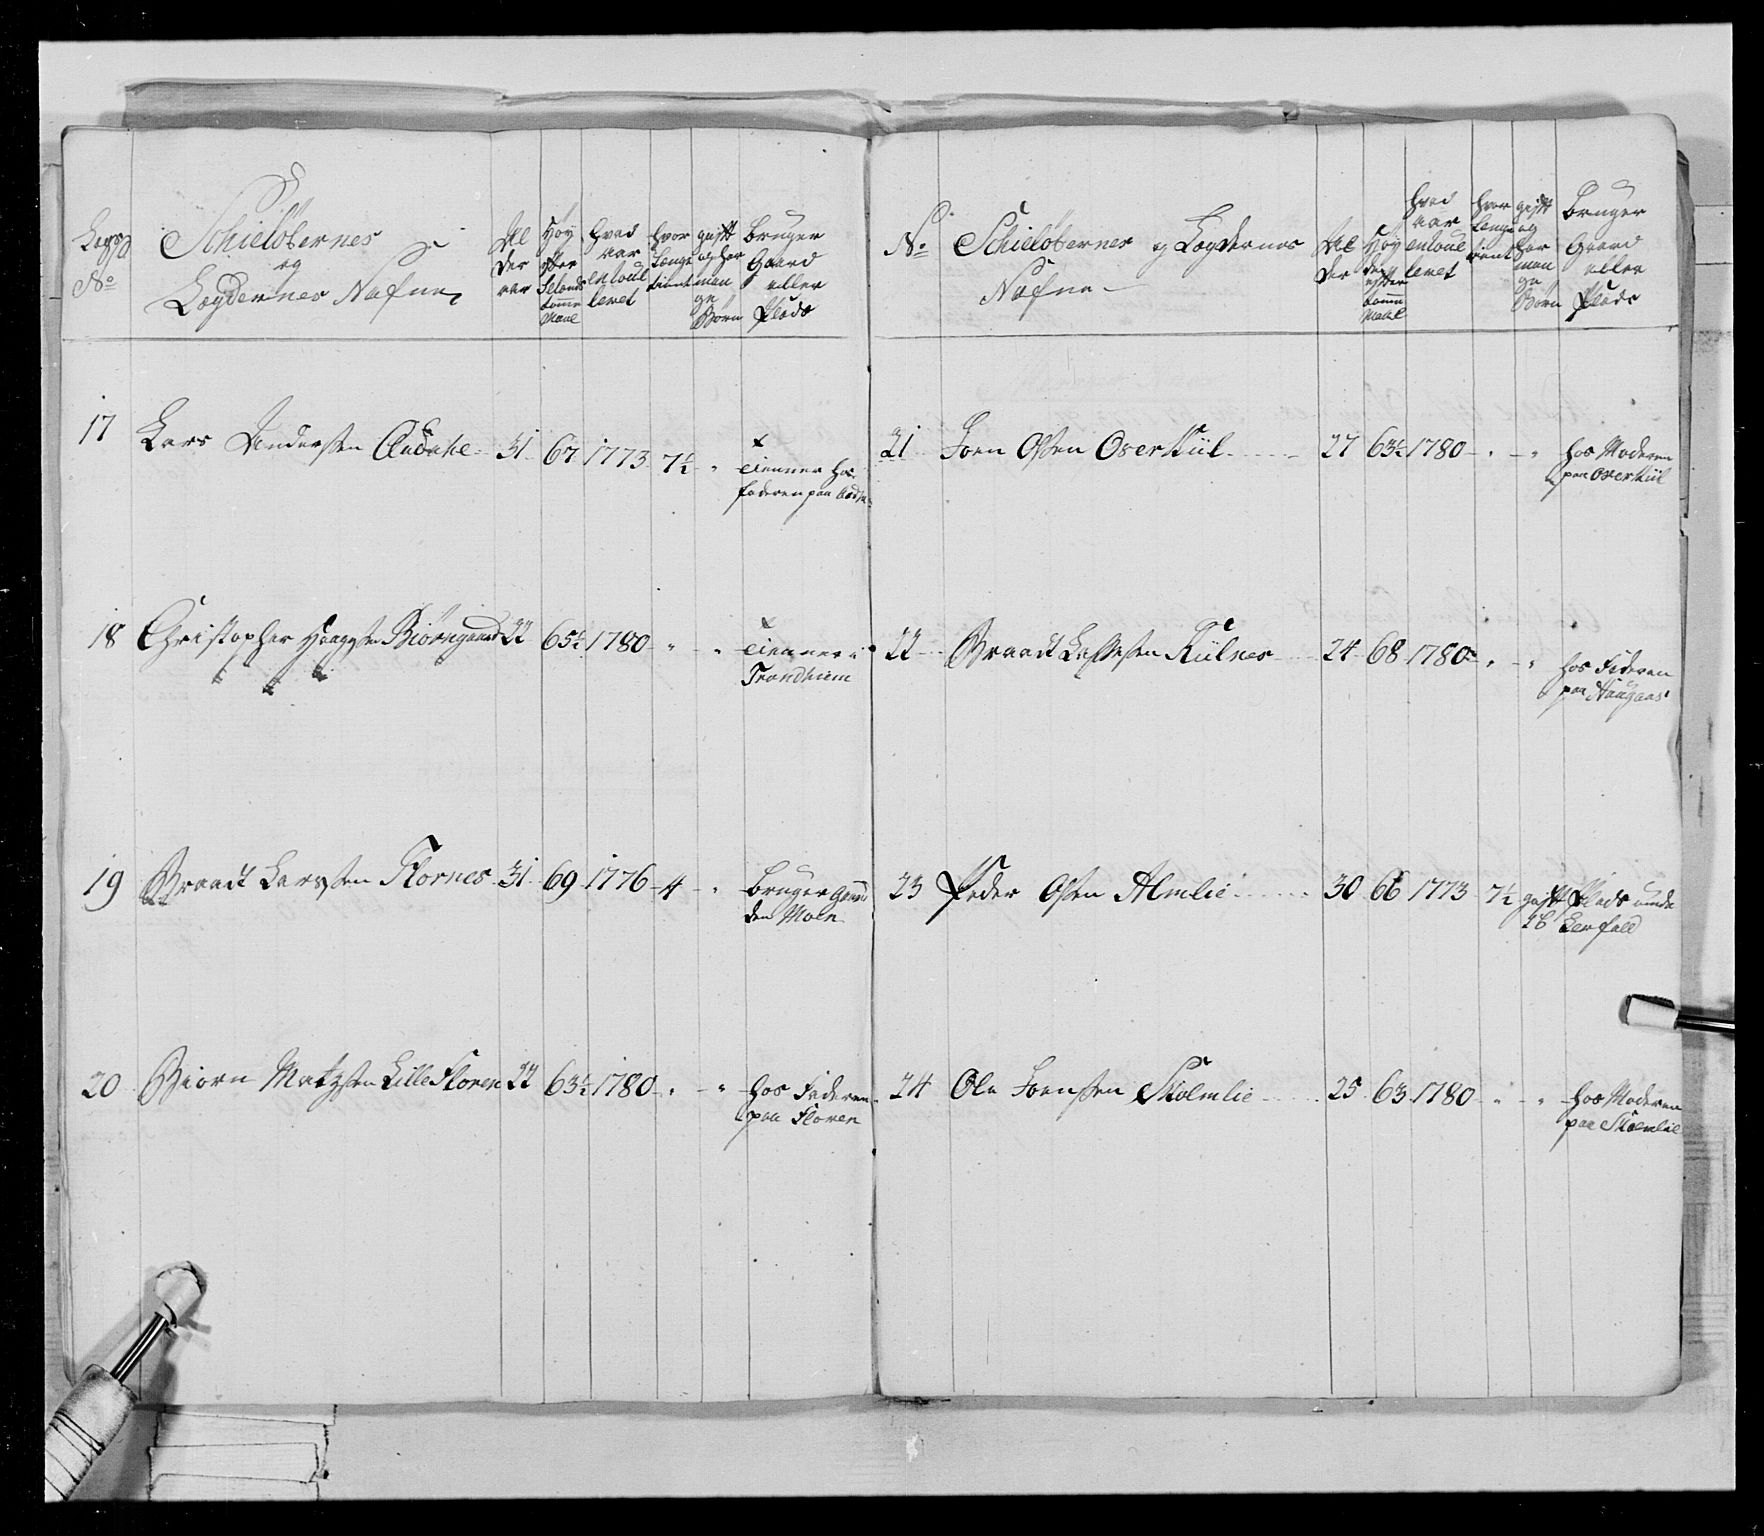 Lægs
No
Schieløbernes
og
Lægdernes Nafne
Al
der
aar
Høy
efter
Selands
tomme
Maal
hvad
aar
enroul
leret
hvor
længe
tient
gift
og har
man
ge
Børn
bruger
Gaard
eller
Plads
17 Lars Andersen 31 67 1773 7½ "
x
tienner hos
faderen paa
18 Christopher Biørngaard 22 65½ 1780 " "
x
tienner i
Trondhiem
19 Braadt Larssen Flornes 31 69 1776 4 "
bruger gaard
den Moen
20 Biørn Matzsen Lille Floren 22 63½ 1780 " "
hos Faderen
paa Floren
No
Schieløbernes og Lægdernes
Nafne
Al
der
Høy
den
efter
tomme
Maal
hvad
aar
enroul
leret
hvor
længe
tient
gift
og
har
man
ge
Børn
bruger
Gaard
eller
Plads
21 Joen Olsen Overkiil 27 63½ 1780 " "
hos Moderen
paa Overkiil
22 Braadt Kiilnes 24 68 1780 " "
hos Faderen
paa Haugaas
23 Peder Olsen Almlie 30 66 1773 7½ gift Plads unde
2 B Leerfald
24 Ole Joensen Skolmlie 25 63 1780 " "
hos Moderen
paa Skolmlie